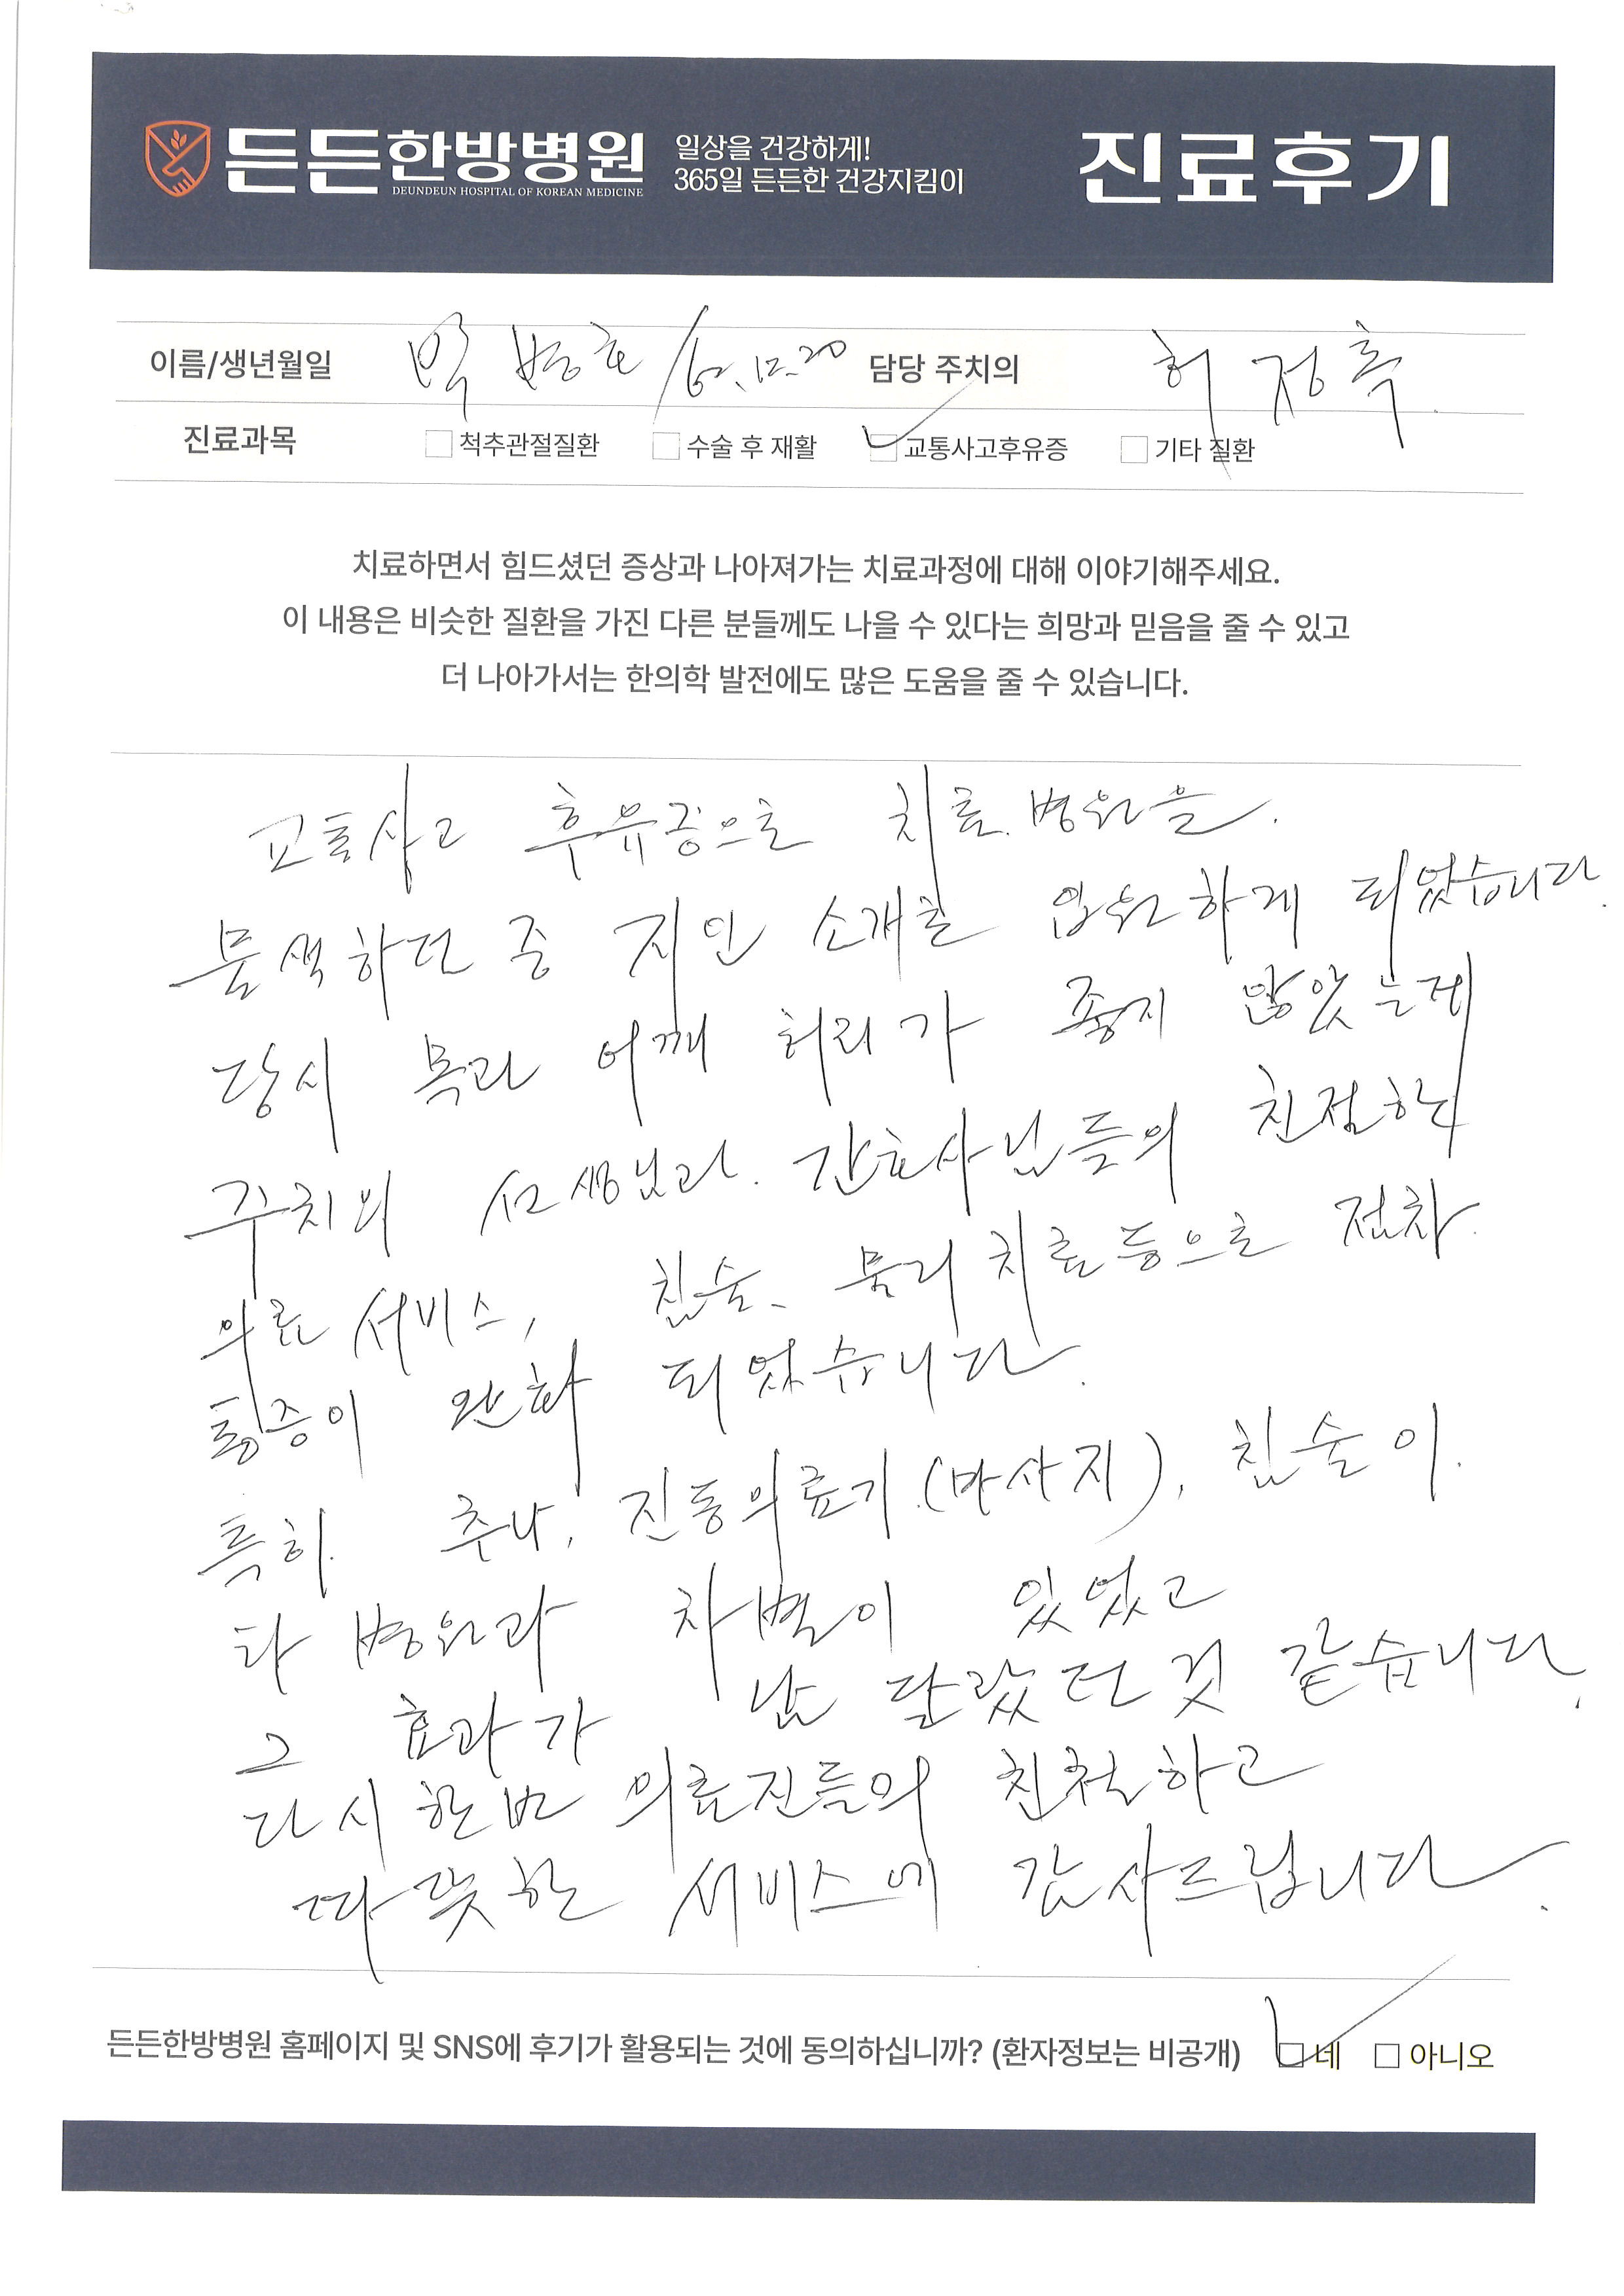 든든한방병원
DEUNDEUN HOSPITAL OF KOREAN MEDICINE
일상을 건강하게!
365일 든든한 건강지킴이
진료후기
이름/생년월일 박병호/62.12.20 담당 주치의 허정욱
진료과목 척추관절질환 수술 후 재활 교통사고후유증 기타 질환
치료하면서 힘드셨던 증상과 나아져가는 치료과정에 대해 이야기해주세요.
이 내용은 비슷한 질환을 가진 다른 분들께도 나을 수 있다는 희망과 믿음을 줄 수 있고
더 나아가서는 한의학 발전에도 많은 도움을 줄 수 있습니다.
교통사고 후유증으로 치료. 병원을.
물색하던 중 지인 소개로 입원하게 되었습니다.
당시 목과 어깨 허리가 좋지 않았는데
주치의 선생님과. 간호사님들의 친절한
의료서비스, 침술, 물리치료등으로 점차
통증이 완화 되었습니다.
특히. 추나, 진동의료기(마사지), 침술이.
타 병원과 차별이 있었고
그 효과가 남 달랐던 것 같습니다.
다시한번 의료진들의 친절하고
따뜻한 서비스에 감사드립니다.
든든한방병원 홈페이지 및 SNS에 후기가 활용되는 것에 동의하십니까? (환자정보는 비공개) 네 아니오